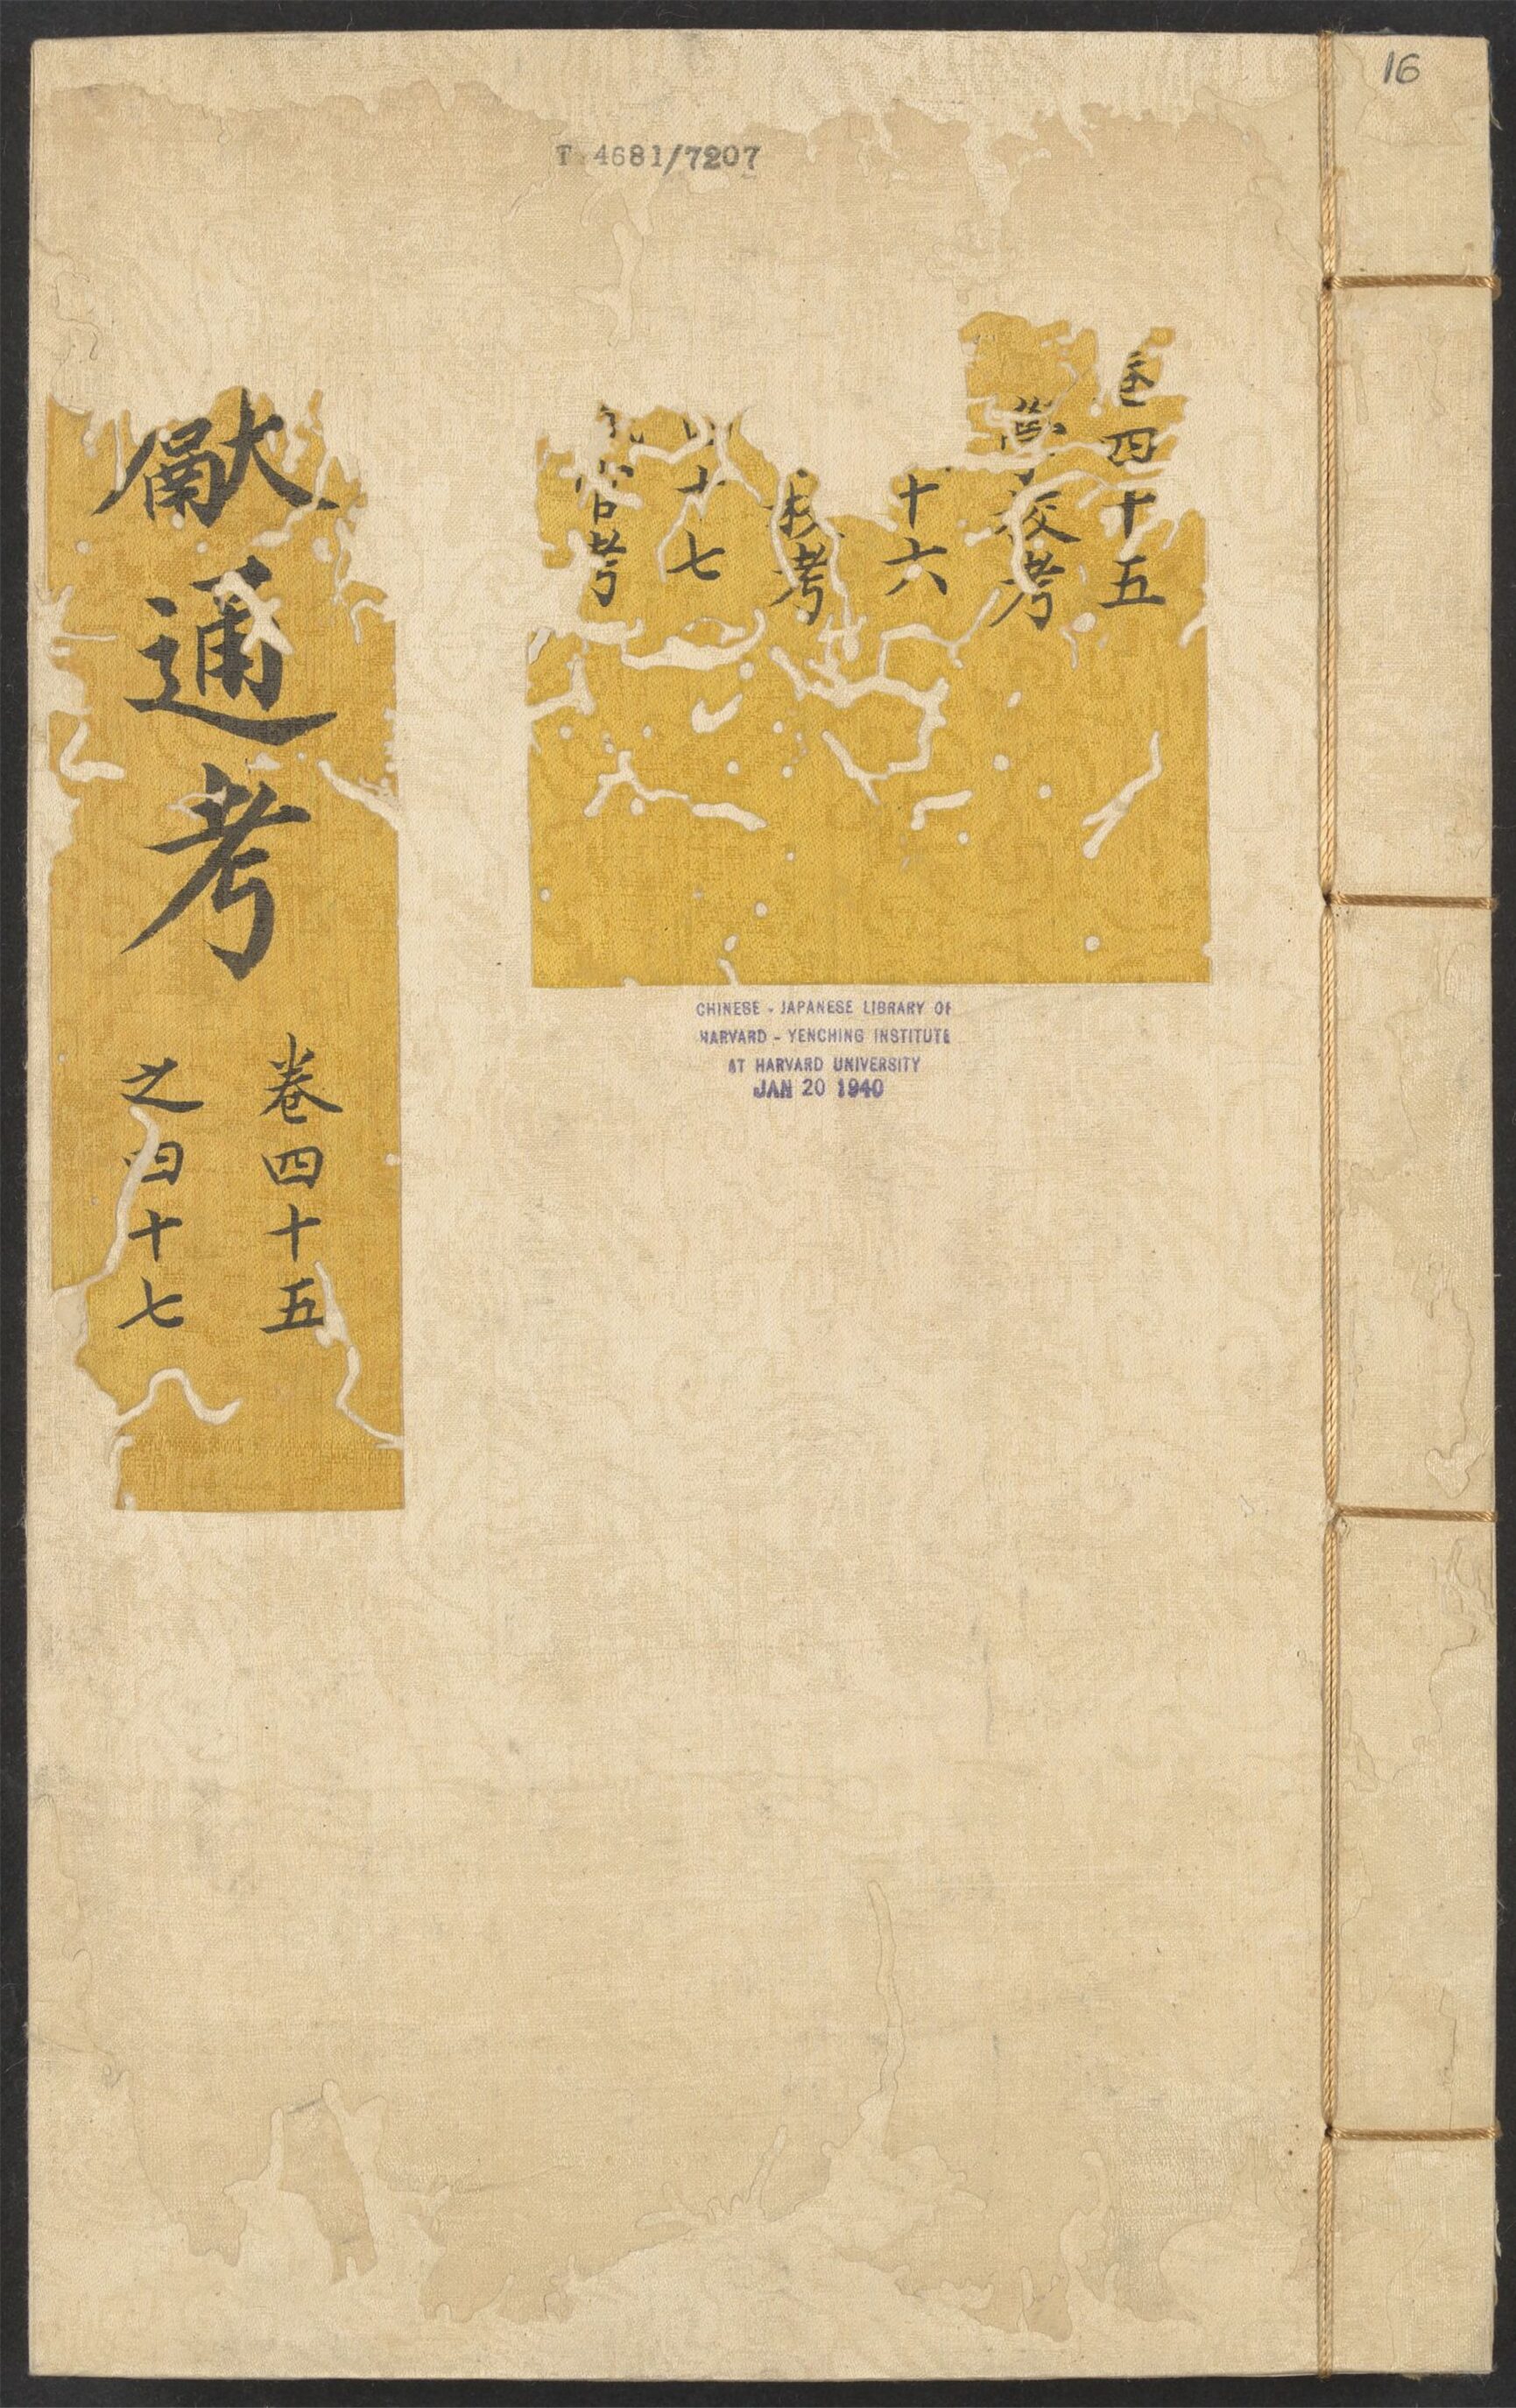 16
T 4681/7207
卷四十五
學校考
十六
校考
十七
官考
獻通考
卷四十五
之四十七
CHINESE - JAPANESE LIBRARY OF
HARVARD - YENCHING INSTITUTE
AT HARVARD UNIVERSITY
JAN 20 1940